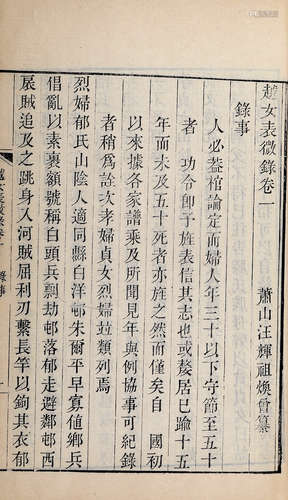 越女表微錄卷一
蕭山汪輝祖煥曾纂
錄事
人必蓋棺論定而婦人年三十以下守節至五十
者 功令卽予旌表信其志也或嫠居已踰十五
年而未及五十死者亦旌之然而僅矣自 國初
以來據各家譜乘及所聞見年與例協事可紀錄
者稍爲詮次孝婦貞女烈婦竝類列焉
烈婦郁氏山陰人適同縣白洋邨朱爾平早寡値鄉兵
倡亂以素裹額號稱白頭兵剽劫邨落郁走避鄰邨西
扆賊追及之跳身入河賊屈利刃繫長竿以鉤其衣郁